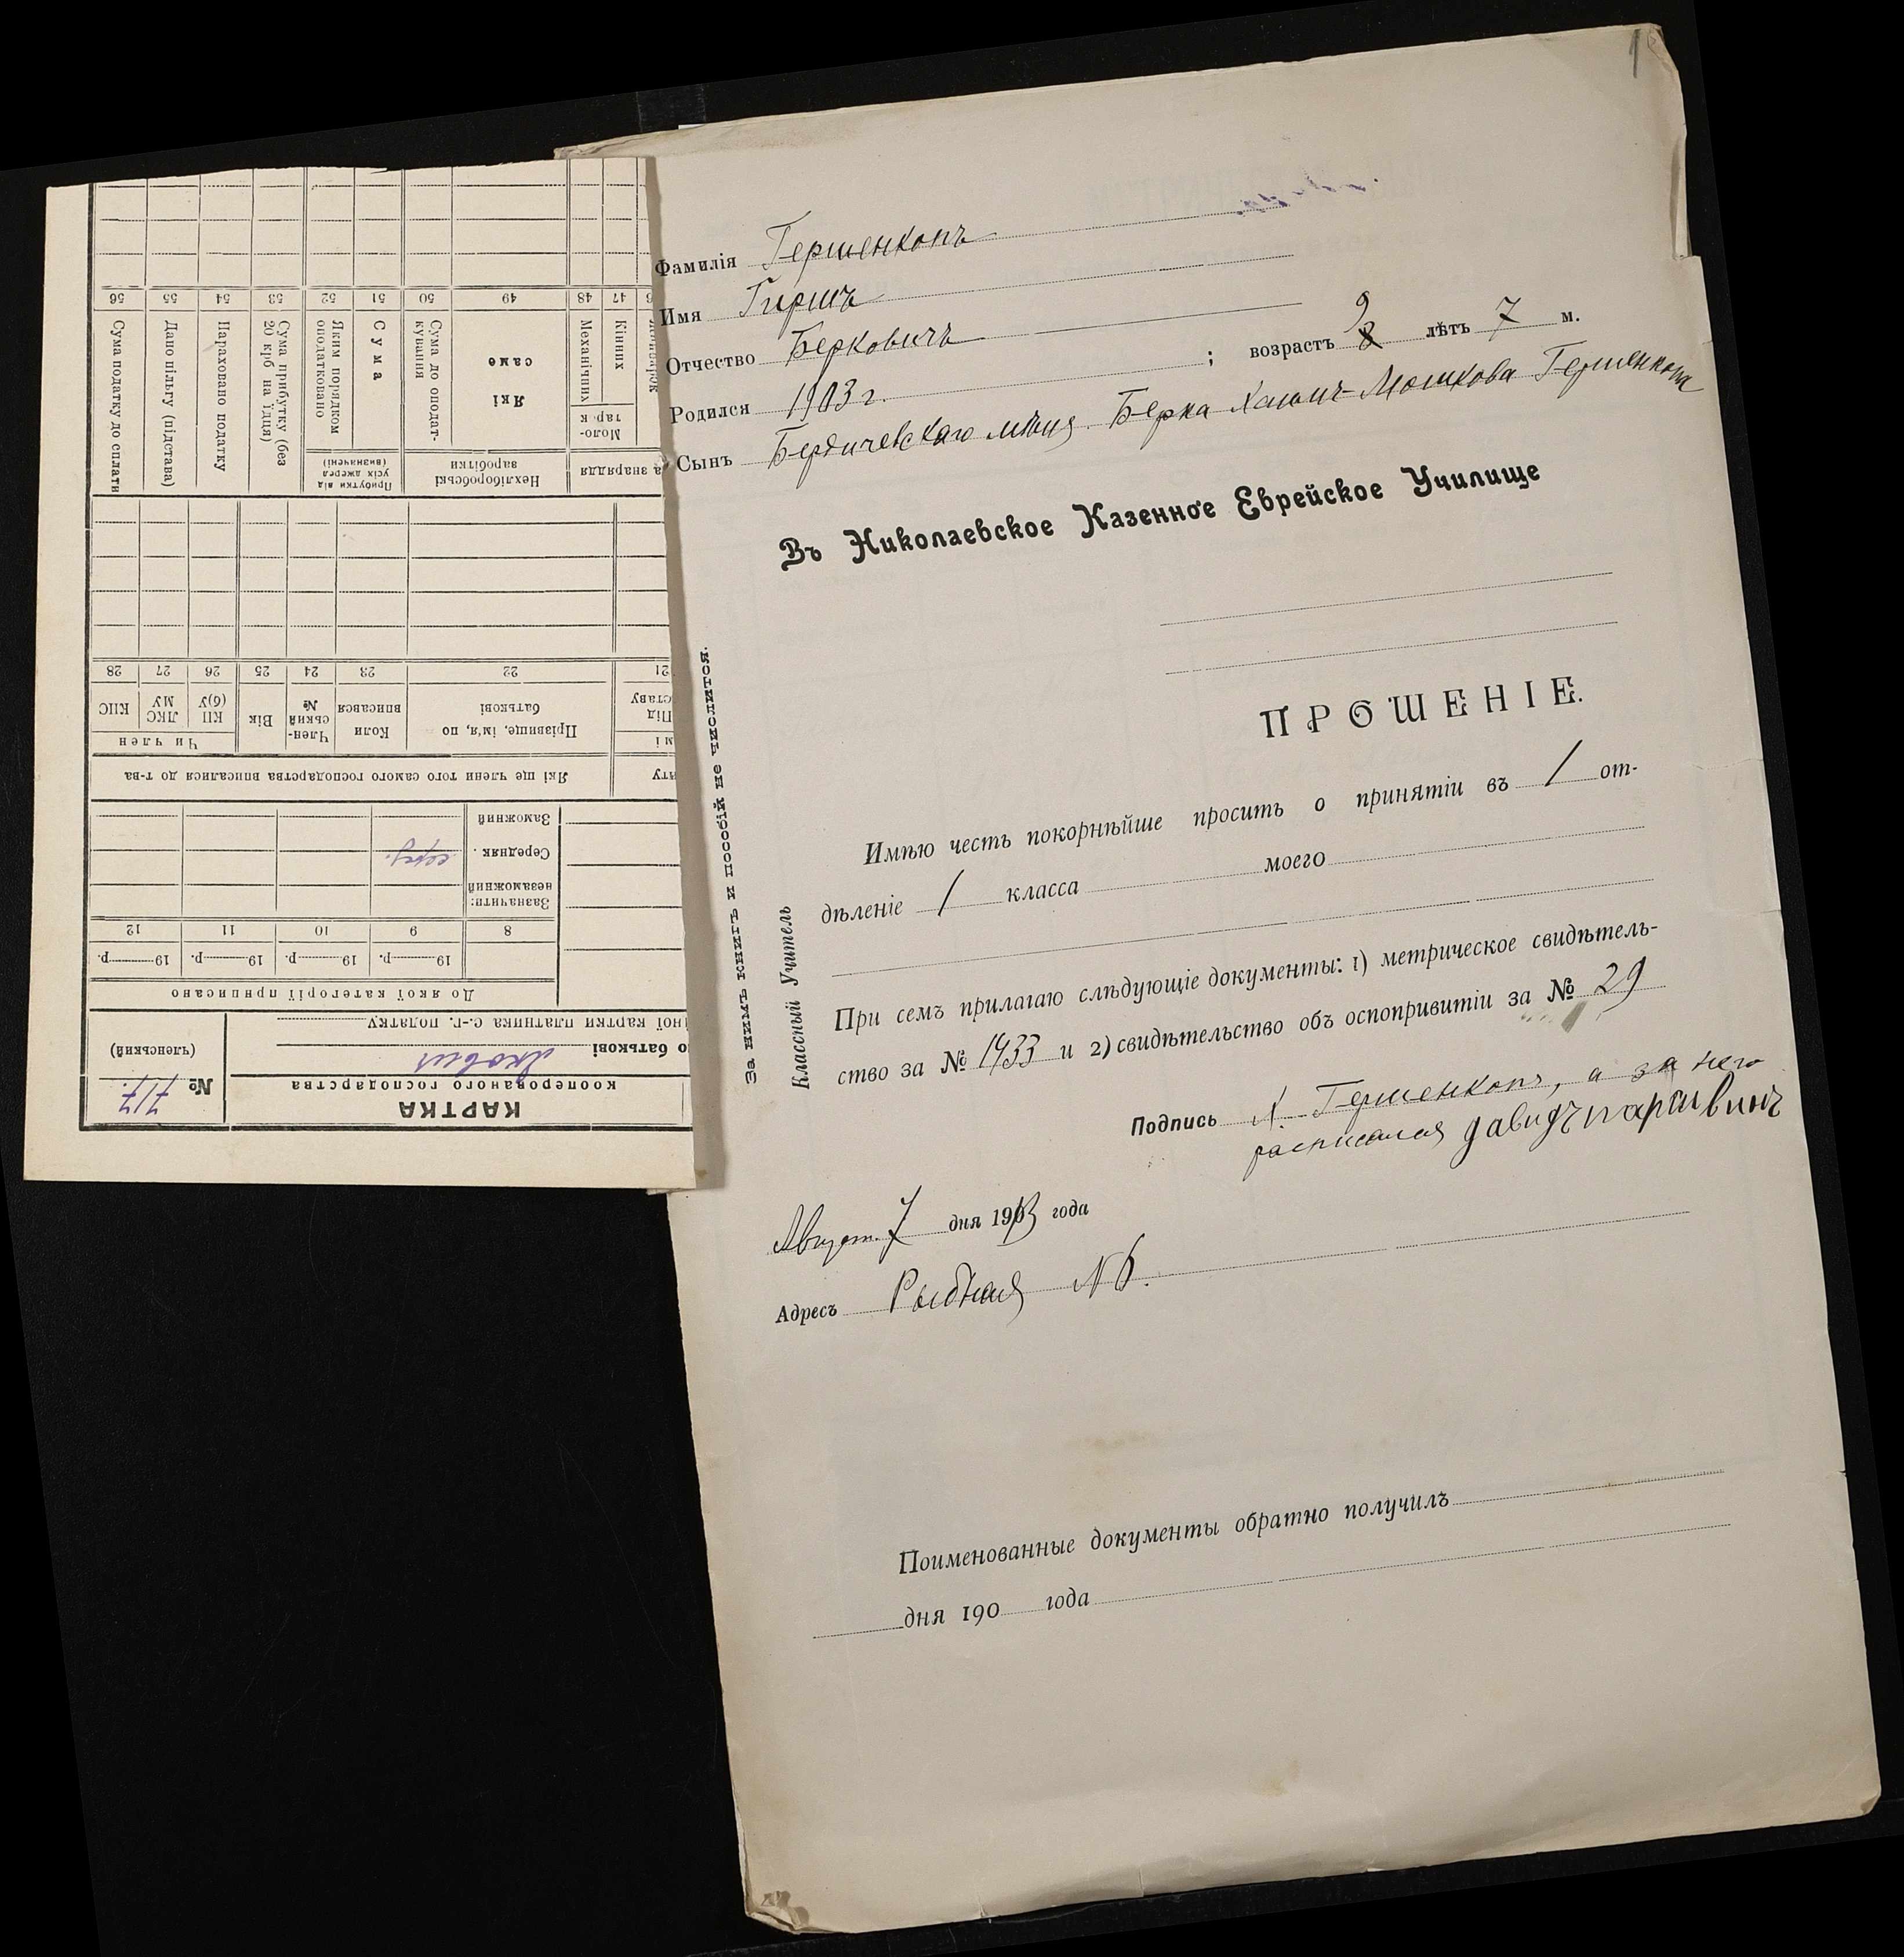 1
Фамилія Гершенкопъ
Имя Гиршъ
Отчество Берковичъ ; возрастъ 9 8 лѣтъ 7 м.
Родился 1903 г.
Сынъ Бердичевскаго мѣщ. Берка Хаим-Мошкова Гершенкопа
Въ Николаевское Казенное Еврейское Училище
ПРОШЕНІЕ.
Имѣю честь покорнѣйше просить о принятіи въ 1 от-
дѣленіе 1 класса моего
При семъ прилагаю слѣдующіе документы: 1) метрическое свидѣтель-
ство за № 1433 и 2) свидѣтельство объ оспопривитіи за № 29
Подпись Х. Гершенкопъ, а за него
расписался Давидъ
Август. 7 дня 1913 года
Адресъ Рыбная № 6.
Поименованные документы обратно получилъ
дня 190 года
За нимъ книгъ и пособій не числится.
Классный Учитель
КАРТКА
кооперованого господарства
№ 717.
(членський)
о батькові Якович
ної картки платника с.-г. податку
До якої категорії приписано
19 р. 19 р. 19 р. 19 р.
8 9 10 11 12
Зазначити:
незаможний
Середняк. серед.
Заможний
Які ще члени того самого господарства вписалися до т-ва
Під
ставу
Прізвище, ім'я, по батькові
Коли вписався
Член-ський №
Вік
Чи член
КП (б)У
ЛКС МУ
КПС
21 22 23 24 25 26 27 28
а знаряддя
Нехліборобські заробітки
Прибутки від усіх джерел (визначені)
Моло-тар к
Кінних
Механічних
Які саме
Сума до оподат-кування
Сума
Яким порядком оподатковано
Сума прибутку (без 20 крб на їдця)
Нараховано податку
Дано пільгу (підстава)
Сума податку до сплати
47 48 49 50 51 52 53 54 55 56